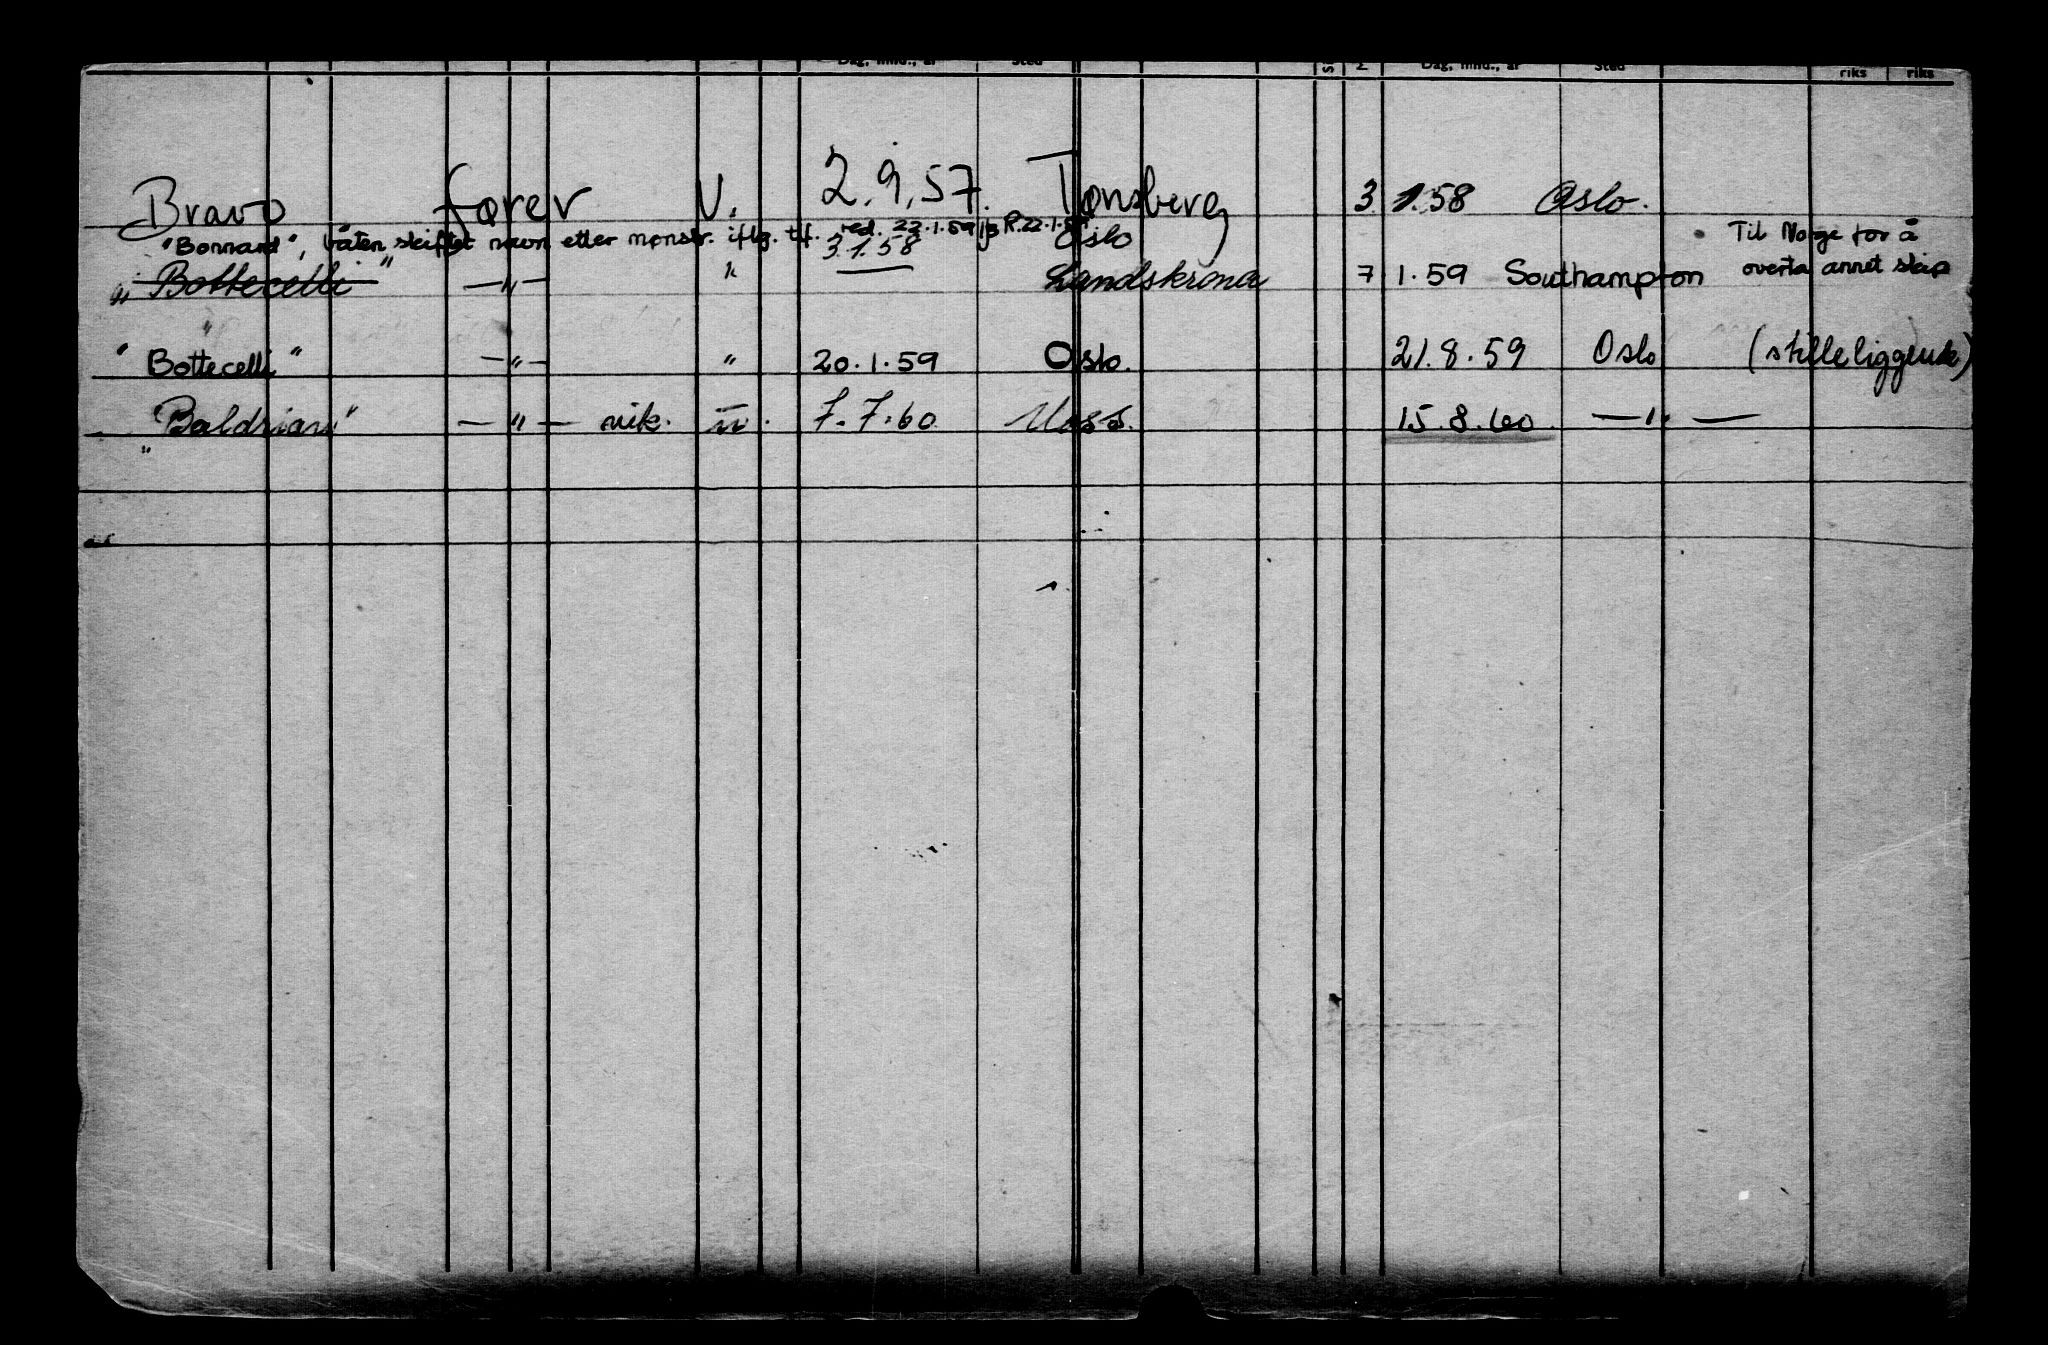 Dag, mnd., år Sted Dag, mnd., år Sted riks riks
Bravo fører U. 2.9.57. Tønsberg 3 1.58 Oslo.
"Bonnard", båten skiftet navn etter mønstr. iflg. tlf. red. 22.1.59 R.22.1.59
3.1.58 Oslo
Til Norge for å
"Bottecelli" —"— " Landskrona 7 1.59 Southampton overta annet skip
"Bottecelli" —"— " 20.1.59 Oslo. 21.8.59 Oslo (stilleliggende)
"Baldrian" —"— vik. " . 7.7.60 Moss. 15.8.60. —"—